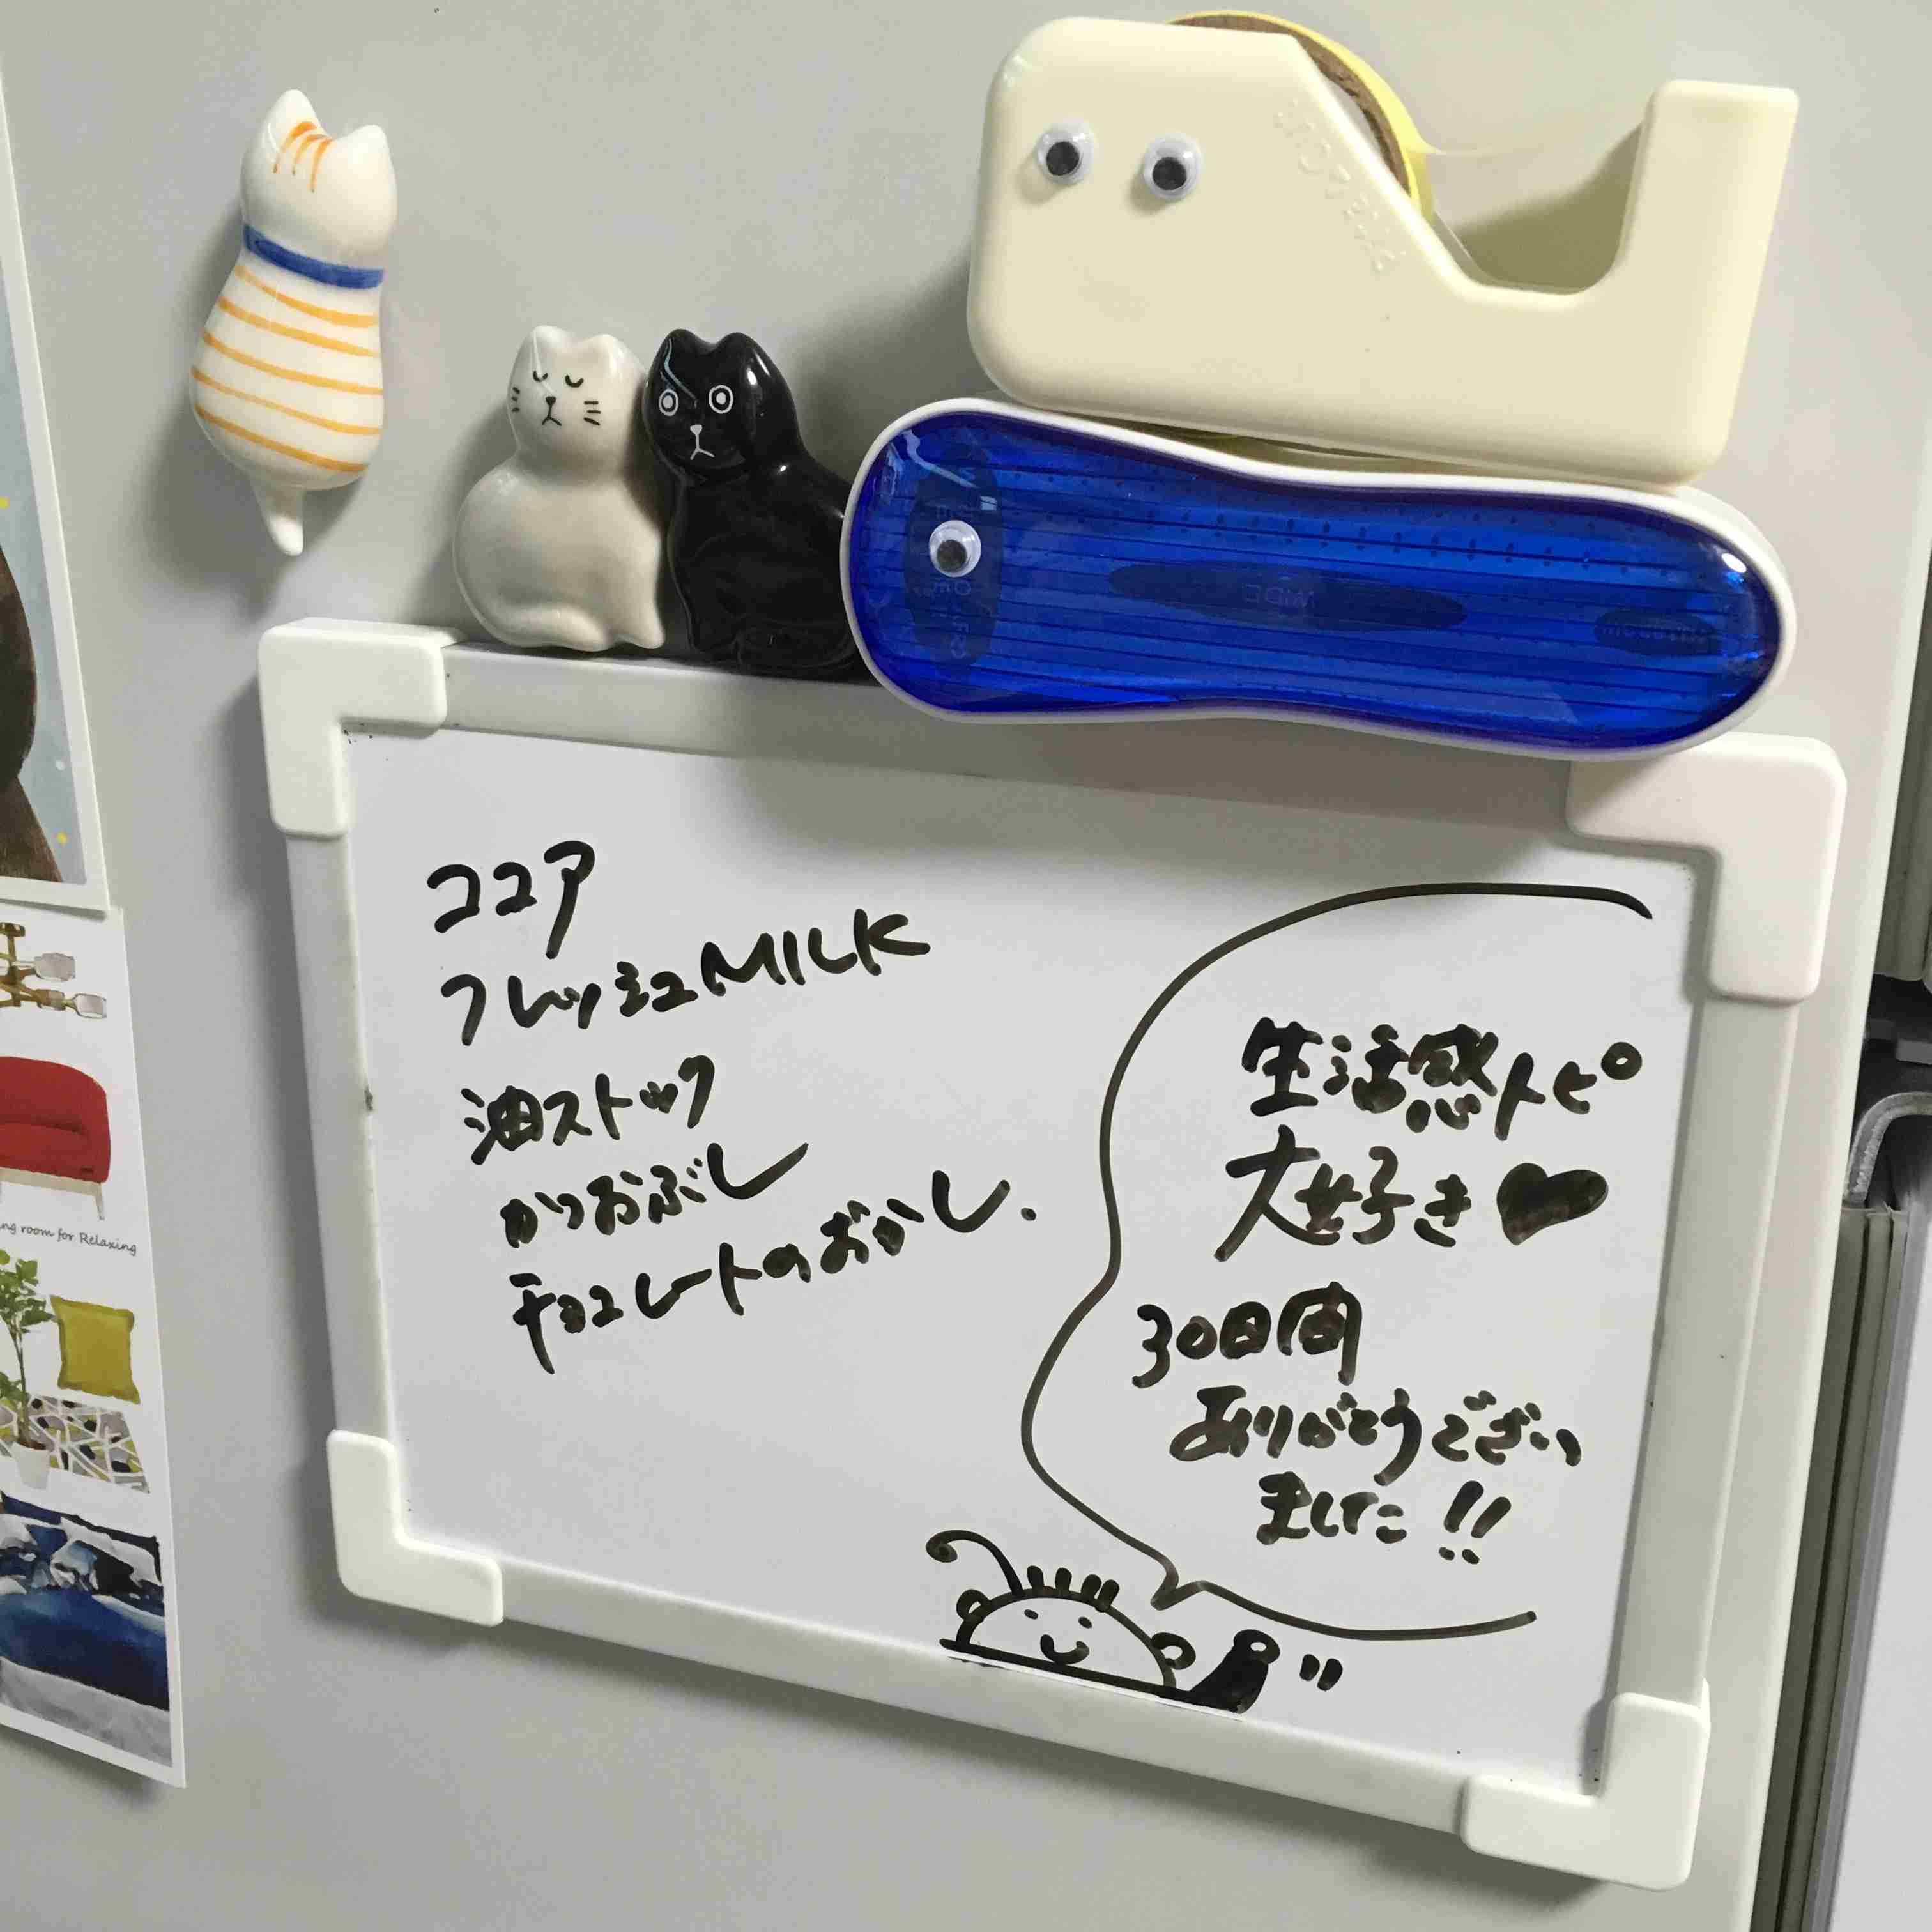 ココア
フレッシュMILK
油ストック
かつおぶし
チョコレートのおかし.
生活感トピ
大好き♥
30日間
ありがとうござい
ました!!
ng room for Relaxing